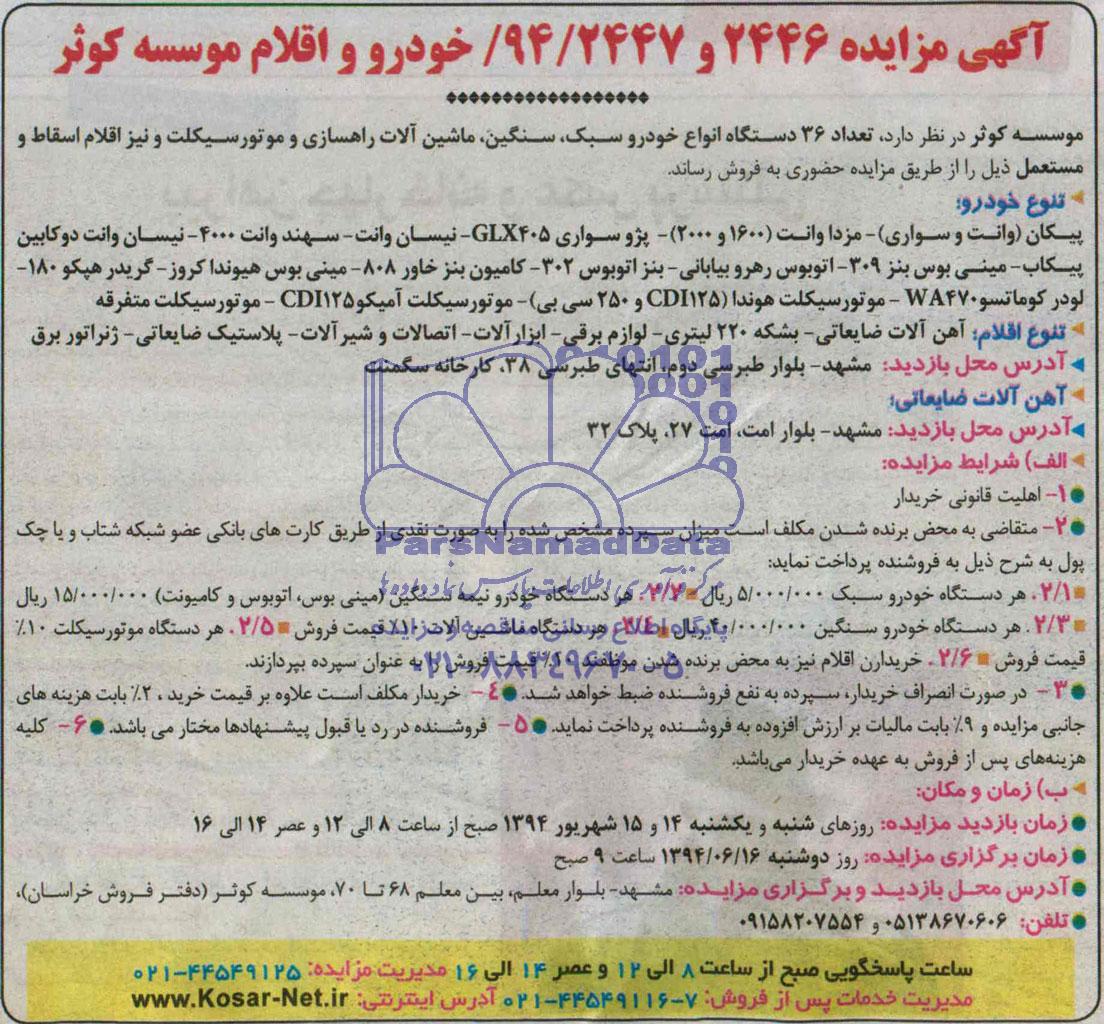 آگهی مزایده ۲۴۴۶ و ۹۴/۲۴۴۷/ خودرو و اقلام موسسه کوثر
موسسه کوثر در نظر دارد، تعداد ۳۶ دستگاه انواع خودرو سبک، سنگین، ماشین آلات راهسازی و موتورسیکلت و نیز اقلام اسقاط و
مستعمل ذیل را از طریق مزایده حضوری به فروش رساند.
تنوع خودرو:
پیکان (وانت و سواری)- مزدا وانت (۱۶۰۰ و ۲۰۰۰)- پژو سواری GLX۴۰۵- نیسان وانت- سهند وانت ۴۰۰۰- نیسان وانت دوکابین
پیکاب- مینی بوس بنز ۳۰۹- اتوبوس رهرو بیابانی- بنز اتوبوس ۳۰۲- کامیون بنز خاور ۸۰۸- مینی بوس هیوندا کروز- گریدر هپکو ۱۸۰-
لودر کوماتسو WA۴۷۰ - موتورسیکلت هوندا (CDI۱۲۵ و ۲۵۰ سی بی)- موتورسیکلت آمیکو CDI۱۲۵ - موتورسیکلت متفرقه
تنوع اقلام: آهن آلات ضایعاتی- بشکه ۲۲۰ لیتری- لوازم برقی- ابزارآلات- اتصالات و شیرآلات- پلاستیک ضایعاتی- ژنراتور برق
آدرس محل بازدید: مشهد- بلوار طبرسی دوم، انتهای طبرسی ۳۸، کارخانه سگمنت
آهن آلات ضایعاتی:
آدرس محل بازدید: مشهد- بلوار امت، امت ۲۷، پلاک ۳۲
الف) شرایط مزایده:
۱- اهلیت قانونی خریدار
۲- متقاضی به محض برنده شدن مکلف است میزان سپرده مشخص شده را به صورت نقدی از طریق کارت های بانکی عضو شبکه شتاب و یا چک
پول به شرح ذیل به فروشنده پرداخت نماید:
۲/۱. هر دستگاه خودرو سبک ۵/۰۰۰/۰۰۰ ریال ۲/۲. هر دستگاه خودرو نیمه سنگین (مینی بوس، اتوبوس و کامیونت) ۱۵/۰۰۰/۰۰۰ ریال
۲/۳. هر دستگاه خودرو سنگین ۴۰/۰۰۰/۰۰۰ ریال ۲/۴. هر دستگاه ماشین آلات ۱۰٪ قیمت فروش ۲/۵. هر دستگاه موتورسیکلت ۱۰٪
قیمت فروش ۲/۶. خریدارن اقلام نیز به محض برنده شدن موظفند ۱۰٪ قیمت فروش را به عنوان سپرده بپردازند.
۳- در صورت انصراف خریدار، سپرده به نفع فروشنده ضبط خواهد شد. ۴- خریدار مکلف است علاوه بر قیمت خرید، ۲٪ بابت هزینه های
جانبی مزایده و ۹٪ بابت مالیات بر ارزش افزوده به فروشنده پرداخت نماید. ۵- فروشنده در رد یا قبول پیشنهادها مختار می باشد. ۶- کلیه
هزینه‌های پس از فروش به عهده خریدار می‌باشد.
ب) زمان و مکان:
زمان بازدید مزایده: روزهای شنبه و یکشنبه ۱۴ و ۱۵ شهریور ۱۳۹۴ صبح از ساعت ۸ الی ۱۲ و عصر ۱۴ الی ۱۶
زمان برگزاری مزایده: روز دوشنبه ۱۳۹۴/۰۶/۱۶ ساعت ۹ صبح
آدرس محل بازدید و برگزاری مزایده: مشهد- بلوار معلم، بین معلم ۶۸ تا ۷۰، موسسه کوثر (دفتر فروش خراسان)،
تلفن: ۰۵۱۳۸۶۷۰۶۰۶ و ۰۹۱۵۸۲۰۷۵۵۴
ساعت پاسخگویی صبح از ساعت ۸ الی ۱۲ و عصر ۱۴ الی ۱۶ مدیریت مزایده: ۰۲۱-۴۴۵۴۹۱۲۵
مدیریت خدمات پس از فروش: ۰۲۱-۴۴۵۴۹۱۱۶-۷ آدرس اینترنتی: www.Kosar-Net.ir
ParsNamadData
مرکز فرآوری اطلاعات پارس نماد داده ها
پایگاه اطلاع رسانی مناقصه و مزایده
۰۲۱-۸۸۳۴۹۶۷۰-۵